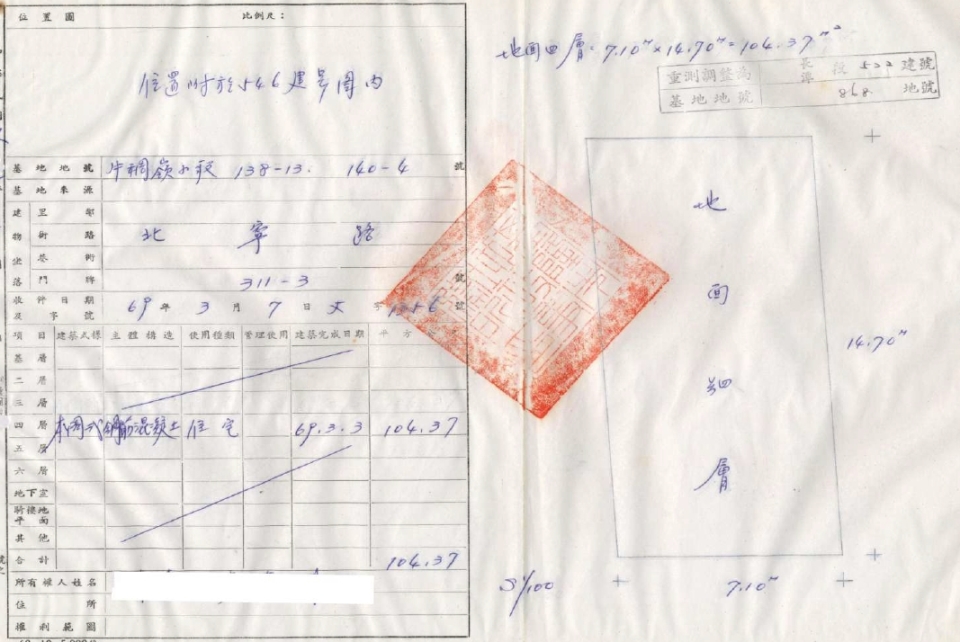 位置圖 比例尺：
位置附於546建号圖內
基地地號 牛稠嶺小段 138-13. 140-4 號
基地來源
建 里鄰
物 街路 北寧路
坐 巷衖
落 門牌 311-3 號
收件日期及字號 69年3月7日 字 號
項目 建築式樣 主體構造 使用種類 管理使用 建築完成日期 平方
基層
二層
三層
四層 本國式 鋼筋混凝土 住宅 69.3.3 104.37
五層
六層
地下室
騎樓地平面
其他
合計 104.37
所有權人姓名
住所
權利範圍
地面四層：7.10ᵐ×14.70ᵐ=104.37ᵐ²
重測調整為 長潭段 522 建號
基地地號 868 地號
地
面
四
層
14.70ᵐ
7.10ᵐ
S 1/100